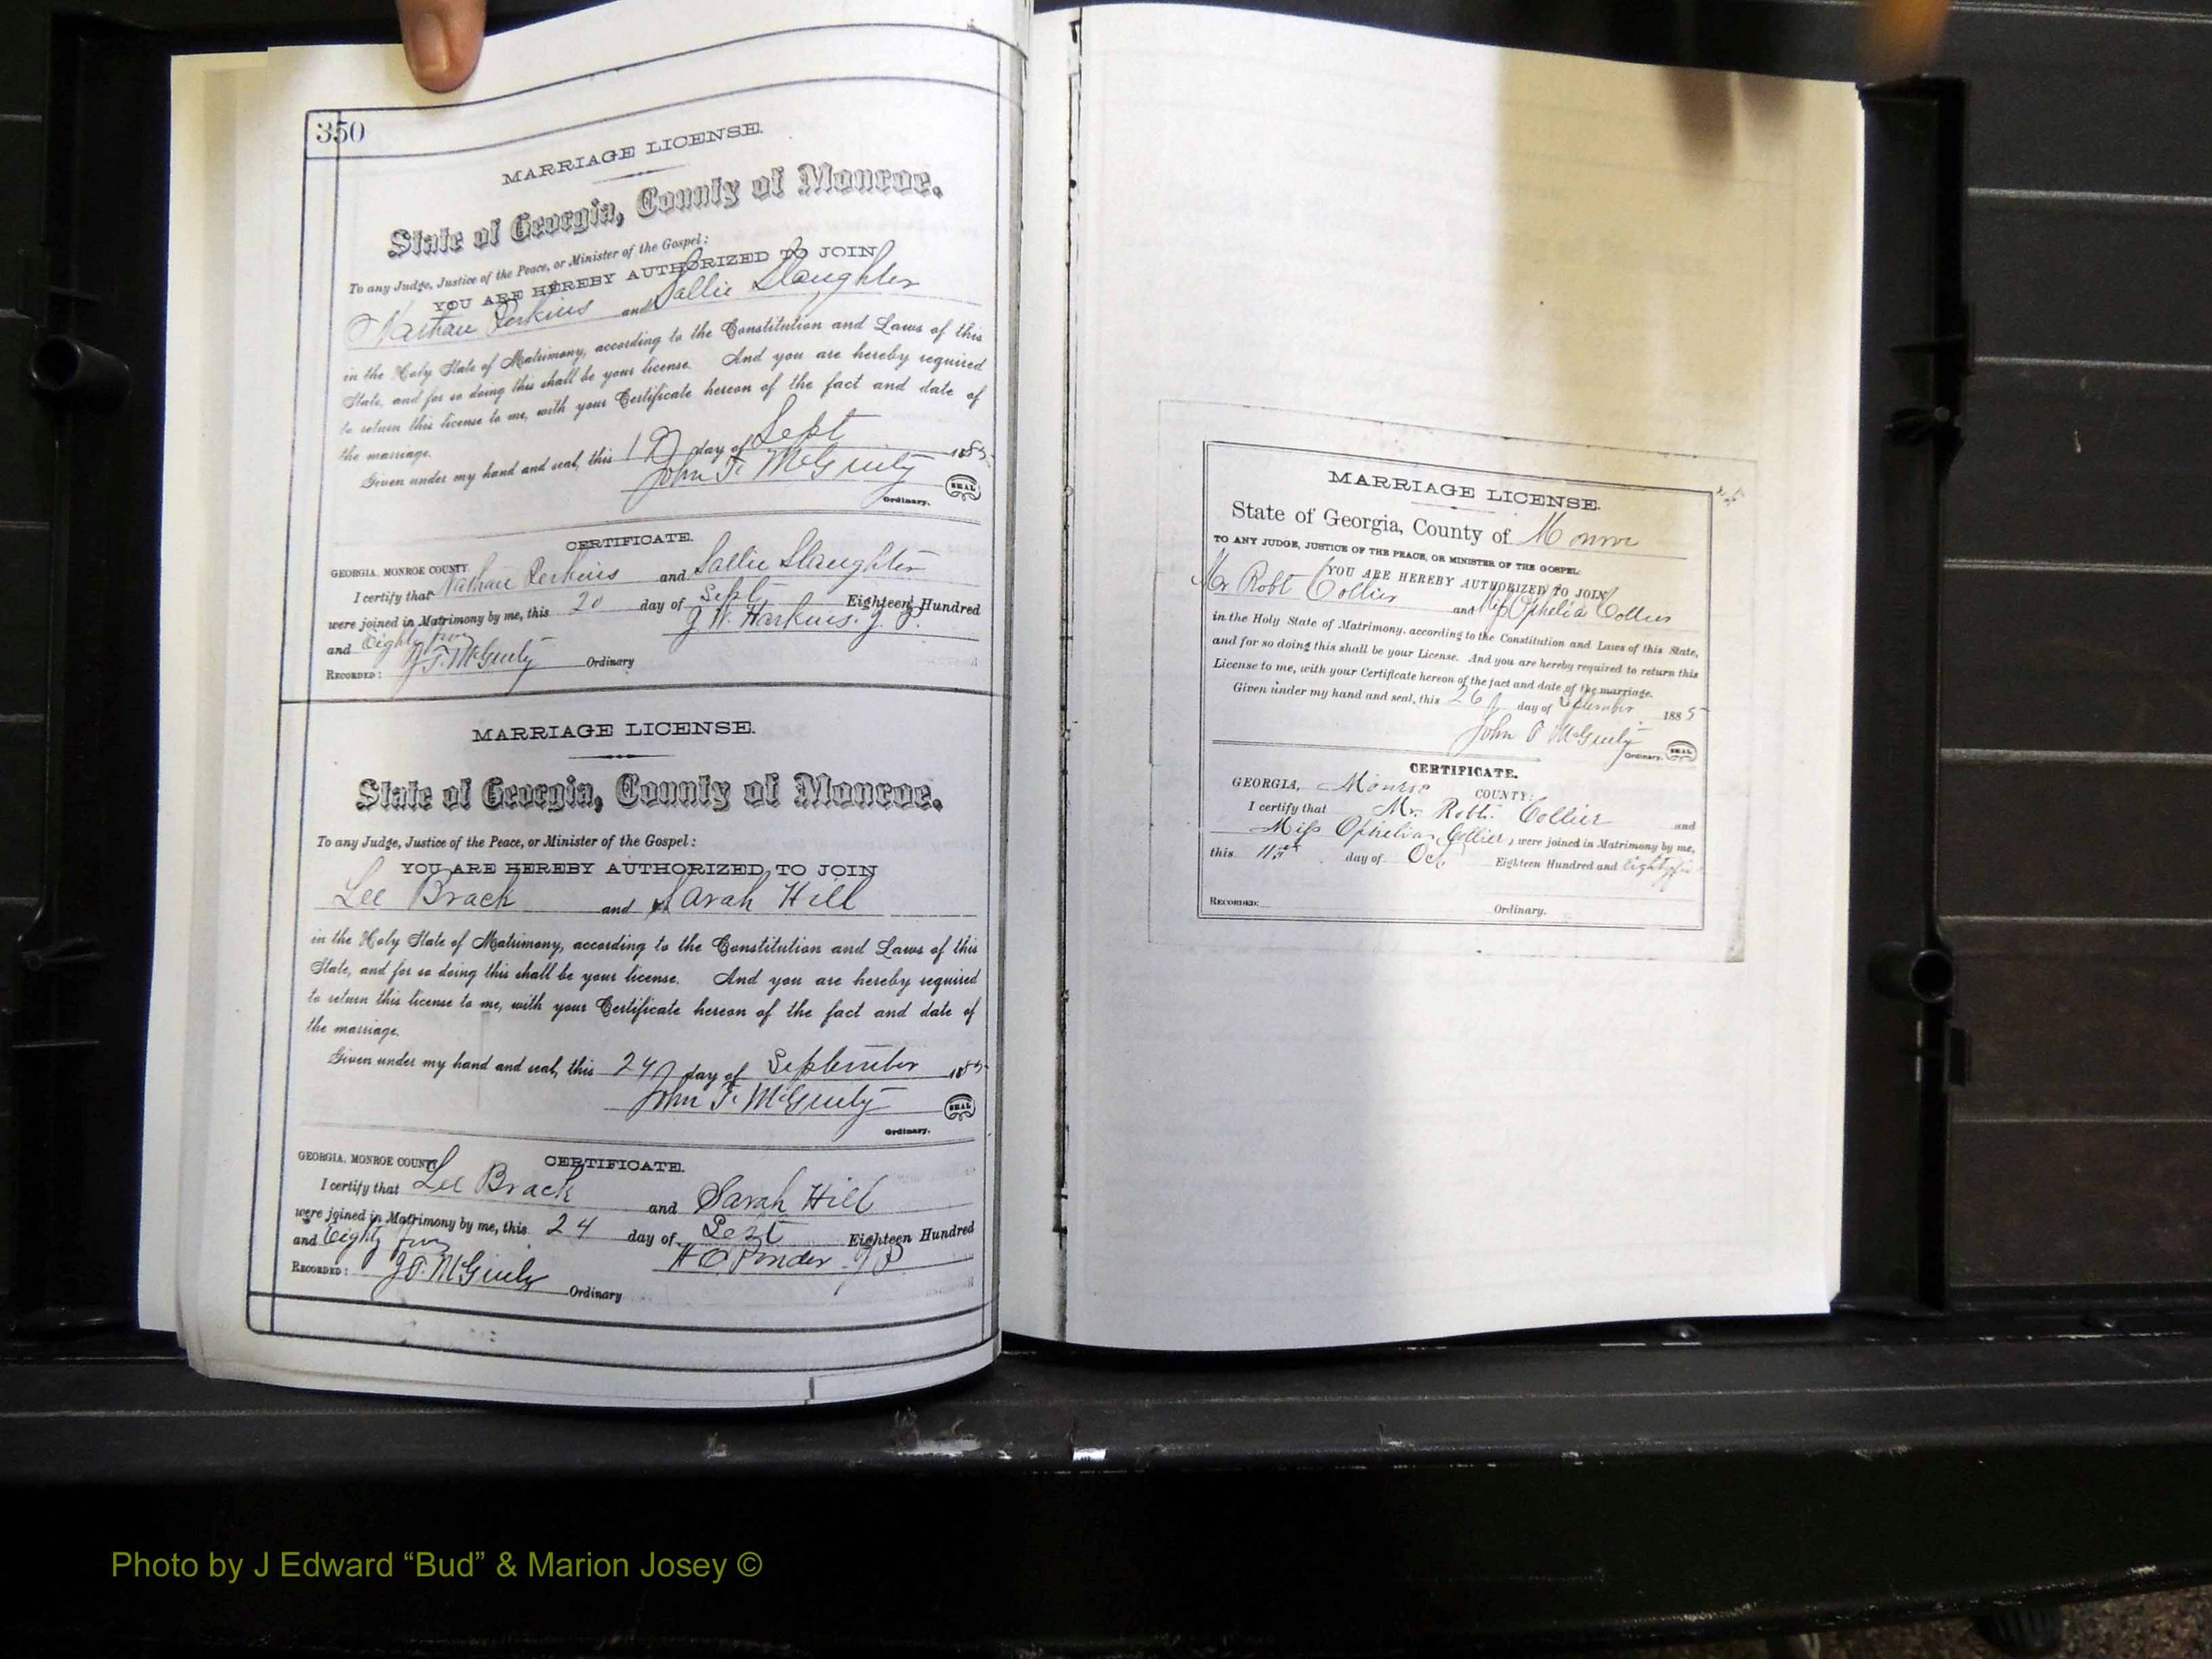 350
MARRIAGE LICENSE.
State of Georgia, County of Monroe.
To any Judge, Justice of the Peace, or Minister of the Gospel:
YOU ARE HEREBY AUTHORIZED TO JOIN
Nathan Perkins and Sallie Slaughter
in the Holy State of Matrimony, according to the Constitution and Laws of this
State, and for so doing this shall be your license. And you are hereby required
to return this license to me, with your Certificate hereon of the fact and date of
the marriage.
Given under my hand and seal, this 19 day of Sept 1885
John T. McGinty SEAL
Ordinary.
CERTIFICATE.
GEORGIA, MONROE COUNTY.
I certify that Nathan Perkins and Sallie Slaughter
were joined in Matrimony by me, this 20 day of Sept Eighteen Hundred
and Eighty five J. W. Harkins. J. P.
RECORDED: J. T. McGinty Ordinary
MARRIAGE LICENSE.
State of Georgia, County of Monroe.
To any Judge, Justice of the Peace, or Minister of the Gospel:
YOU ARE HEREBY AUTHORIZED TO JOIN
Lee Brack and Sarah Hill
in the Holy State of Matrimony, according to the Constitution and Laws of this
State, and for so doing this shall be your license. And you are hereby required
to return this license to me, with your Certificate hereon of the fact and date of
the marriage.
Given under my hand and seal, this 24 day of September 1885
John T. McGinty SEAL
Ordinary.
GEORGIA, MONROE COUNTY. CERTIFICATE.
I certify that Lee Brack and Sarah Hill
were joined in Matrimony by me, this 24 day of Sept Eighteen Hundred
and Eighty five H C Ponder J P
RECORDED: J. T. McGinty Ordinary
MARRIAGE LICENSE.
State of Georgia, County of Monroe
TO ANY JUDGE, JUSTICE OF THE PEACE, OR MINISTER OF THE GOSPEL:
YOU ARE HEREBY AUTHORIZED TO JOIN
Mr Robt Collier and Miss Ophelia Collier
in the Holy State of Matrimony, according to the Constitution and Laws of this State,
and for so doing this shall be your License. And you are hereby required to return this
License to me, with your Certificate hereon of the fact and date of the marriage.
Given under my hand and seal, this 26 day of September 1885
John T McGinty SEAL
Ordinary.
CERTIFICATE.
GEORGIA, Monroe COUNTY:
I certify that Mr. Robt. Collier and
Miss Ophelia Collier, were joined in Matrimony by me,
this 11th day of Oct Eighteen Hundred and Eighty five
RECORDED: Ordinary.
Photo by J Edward “Bud” & Marion Josey ©